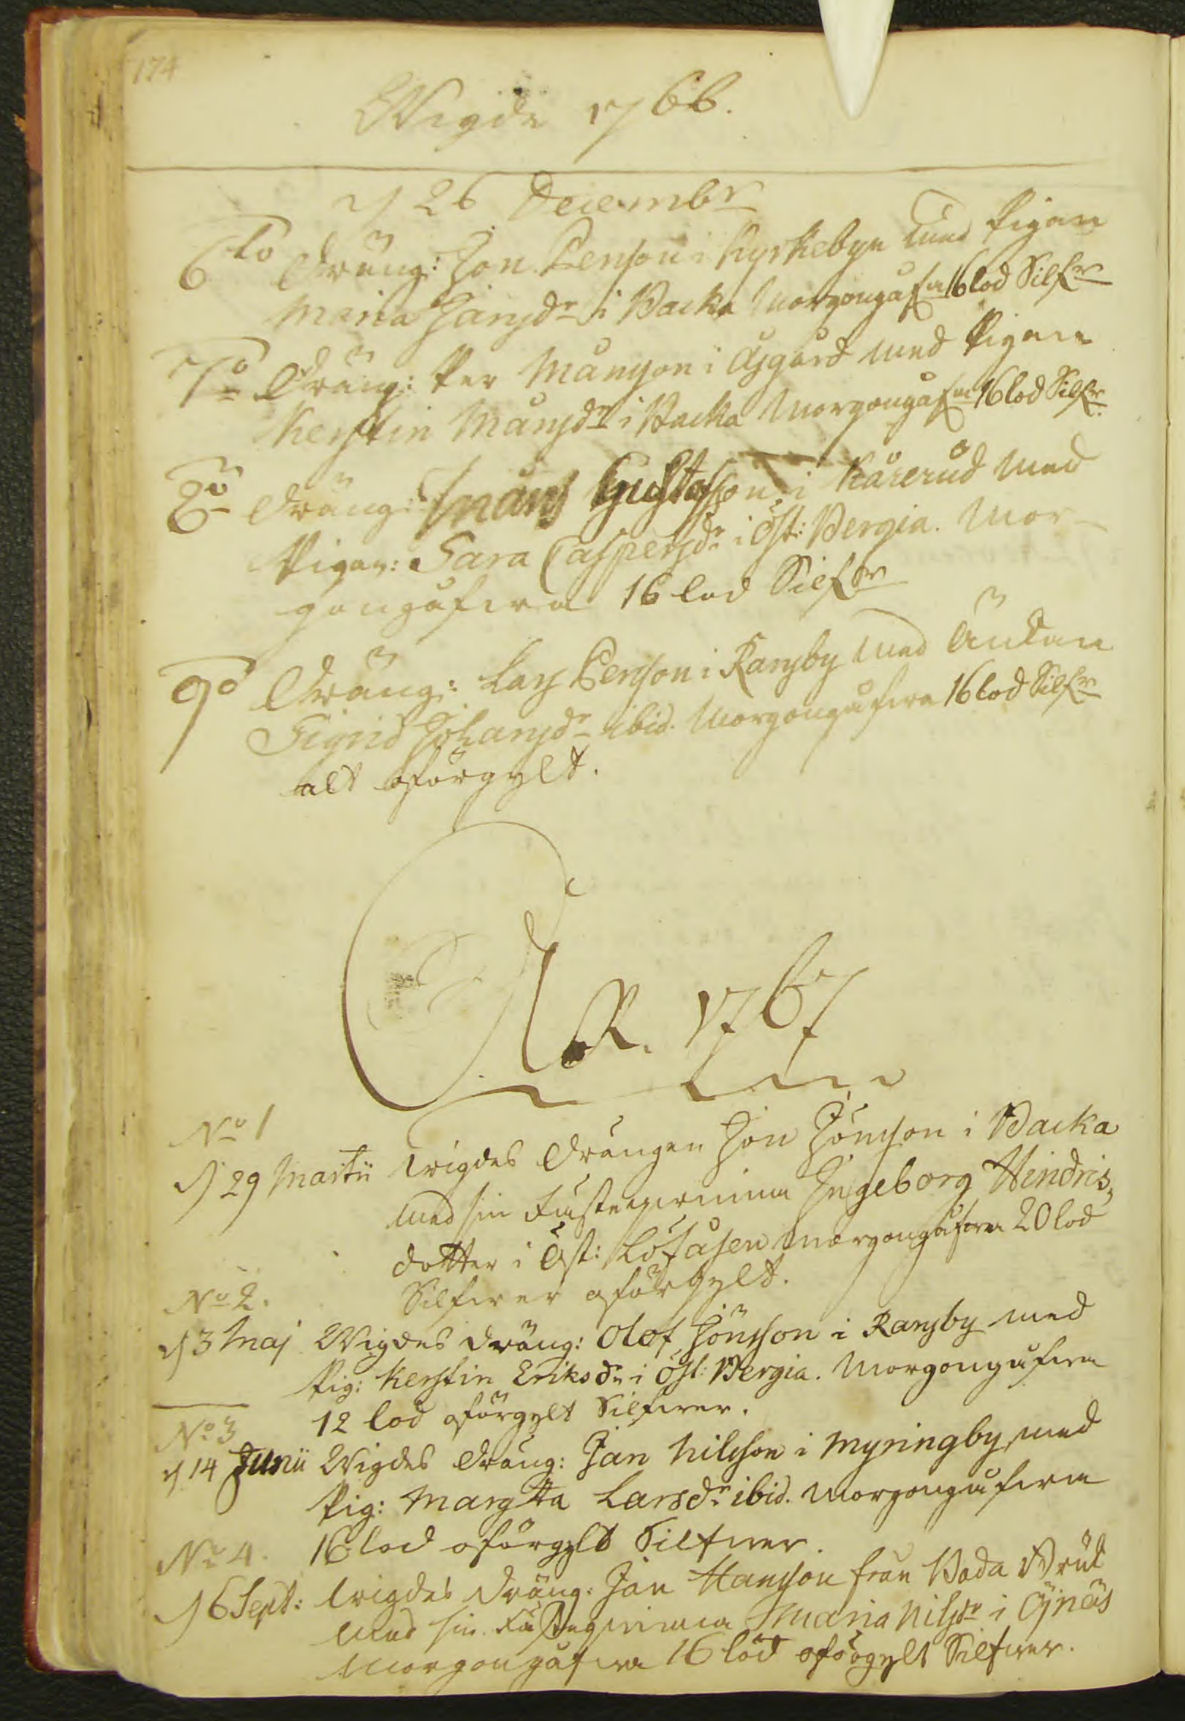 174
Wigde 1766.
d 26 Decembr
6to Dräng: Jon Person i Kyrkebyn med Pigan
Maria Jansdr i Backa Morgongåfa 16 lod Silfr
7o Dräng: Per Månson i Åsgård med Pigan
Kerstin Månsdr i Backa Morgongåfa 16 lod Silfr
8o Dräng: Måns Gustafson i Kårerud med
Pigan: Sara Caspersdr i Öst: Bergia. Mor-
gongåfwa 16 lod Silfr
9o Dräng: Lars Person i Ransby med Änkan
Sigrid Johansdr ibid. Morgongåfwa 16 lod Silfr
alt oförgylt.
A:o 1767
No 1
d 29 Martii wigdes Drängen Jon Jonson i Backa
med sin Fästeqwinna Ingeborg Hindris-
dotter i Öst: Löfåsen morgongåfwa 20 lod
Silfwer oförgylt.
No 2.
d 3 Maj Wigdes Dräng: Olof Jönsson i Ransby med
Pig: Kerstin Eriksdr i Öst: Bergia. Morgongåfwa
12 lod oförgylt Silfwer.
No 3
d 14 Junii Wigdes Dräng: Jan Nilsson i Myringby med
Pig: Margtta Larsdr ibid. Morgongåfwa
16 lod oförgylt Silfwer.
No 4.
d 6 Sept: wigdes Dräng: Jan Hanson från Bada Bruk
med sin Fästeqwinna Maria Nilsdr i Öjnäs
Morgongåfwa 16 lod oförgylt Silfwer.